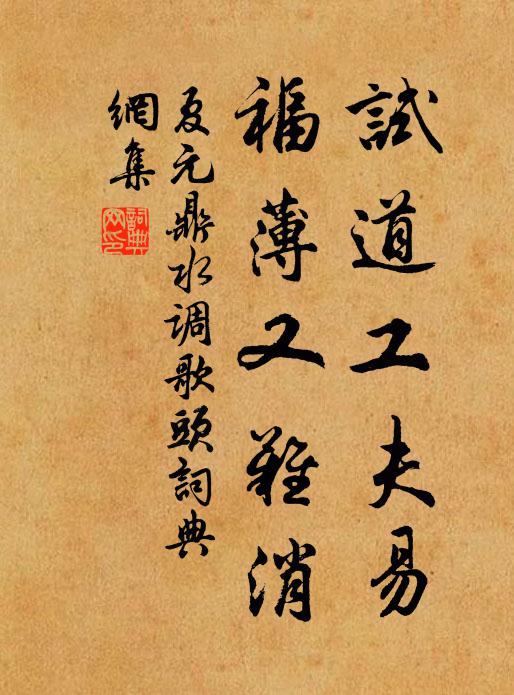 試道工夫易
福薄又難消
夏元鼎水调歌頭詞典
網集
詞典網印